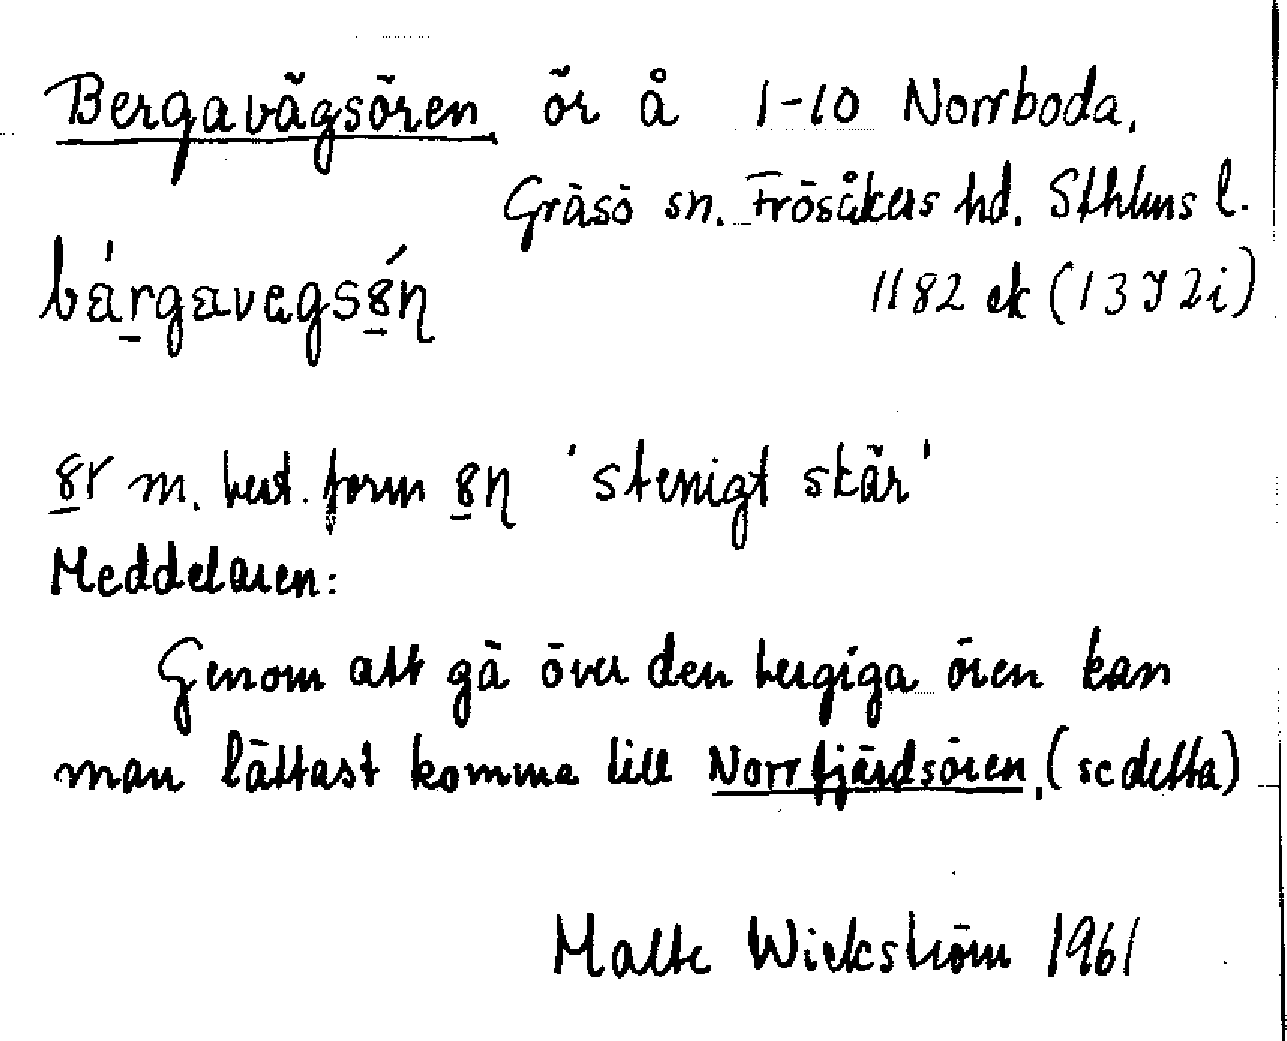 Bergavägsören ör å 1-10 Norrboda,
Gräsö sn. Frösåkers hd. Sthlms l.
1182 ek (13 I 2i)
m. best. form 'stenigt skär'
Meddelaren:
Genom att gå över den bergiga ören kan
man lättast komma till Norrfjärdsören, (se detta)
Malte Wickström 1961